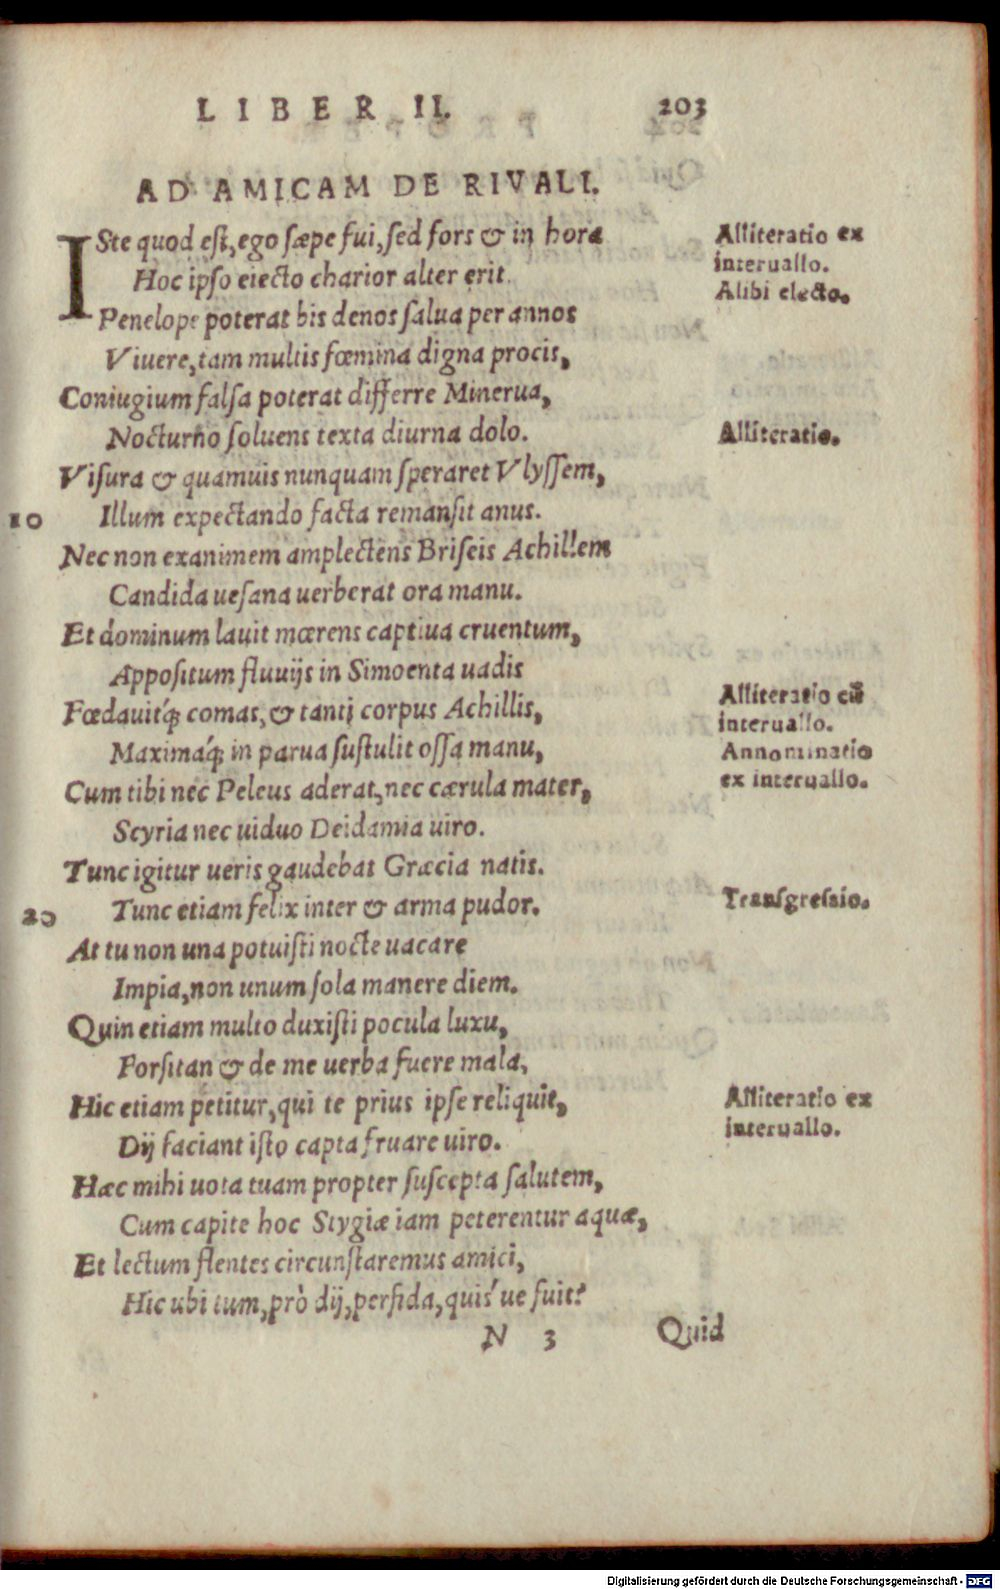 LIBER II. 203
AD AMICAM DE RIVALI.
ISte quod eſt, ego ſæpe fui, ſed fors & in hora
Alliteratio ex
interuallo.
Hoc ipſo eiecto charior alter erit.
Alibi electo.
Penelope poterat bis denos ſalua per annos
Viuere, tam multis fœmina digna procis,
Coniugium falſa poterat differre Minerua,
Nocturno ſoluens texta diurna dolo.
Alliteratio.
Viſura & quamuis nunquam ſperaret Vlyſſem,
10 Illum expectando facta remanſit anus.
Nec non exanimem amplectens Briſeis Achillem
Candida ueſana uerberat ora manu.
Et dominum lauit mœrens captiua cruentum,
Appoſitum fluuijs in Simoenta uadis
Fœdauitq́; comas, & tanti corpus Achillis,
Alliteratio cũ
interuallo.
Maximaq́; in parua ſuſtulit oſſa manu,
Annominatio
ex interuallo.
Cum tibi nec Peleus aderat, nec cærula mater,
Scyria nec uiduo Deidamia uiro.
Tunc igitur ueris gaudebat Græcia natis.
20 Tunc etiam felix inter & arma pudor.
Transgreſsio.
At tu non una potuiſti nocte uacare
Impia, non unum ſola manere diem.
Quin etiam multo duxiſti pocula luxu,
Forſitan & de me uerba fuere mala,
Hic etiam petitur, qui te prius ipſe reliquit,
Alliteratio ex
interuallo.
Dij faciant iſto capta fruare uiro.
Hæc mihi uota tuam propter ſuſcepta ſalutem,
Cum capite hoc Stygiæ iam peterentur aquæ,
Et lectum flentes circunſtaremus amici,
Hic ubi tum, prò dij, perfida, quis´ue fuit?
N 3 Quid
Digitalisierung gefördert durch die Deutsche Forschungsgemeinschaft - DFG